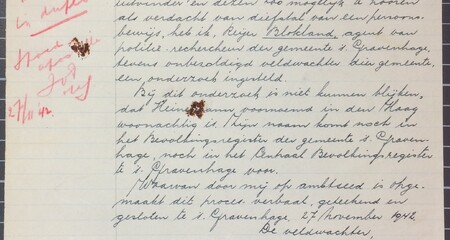 uitvinder en dezen zoo mogelijk te hooren
als verdacht van diefstal van een persoons-
bewijs, heb ik, Reijer Blokland, agent van
politie-rechercheur der gemeente 's Gravenhage,
tevens onbezoldigd veldwachter dier gemeente,
een onderzoek ingesteld.
Bij dit onderzoek is niet kunnen blijken,
dat voornoemd in den Haag
woonachtig is. Zijn naam komt noch in
het Bevolkingsregister der gemeente 's Graven-
hage, noch in het Centraal Bevolkingsregister
te 's Gravenhage voor.
Waarvan door mij op ambtseed is opge-
maakt dit proces verbaal, geteekend en
gesloten te 's Gravenhage, 27 November 1942.
De veldwachter,
27/11 '42.